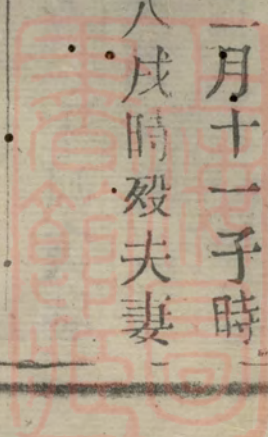 月十一子時
戌時殁夫妻